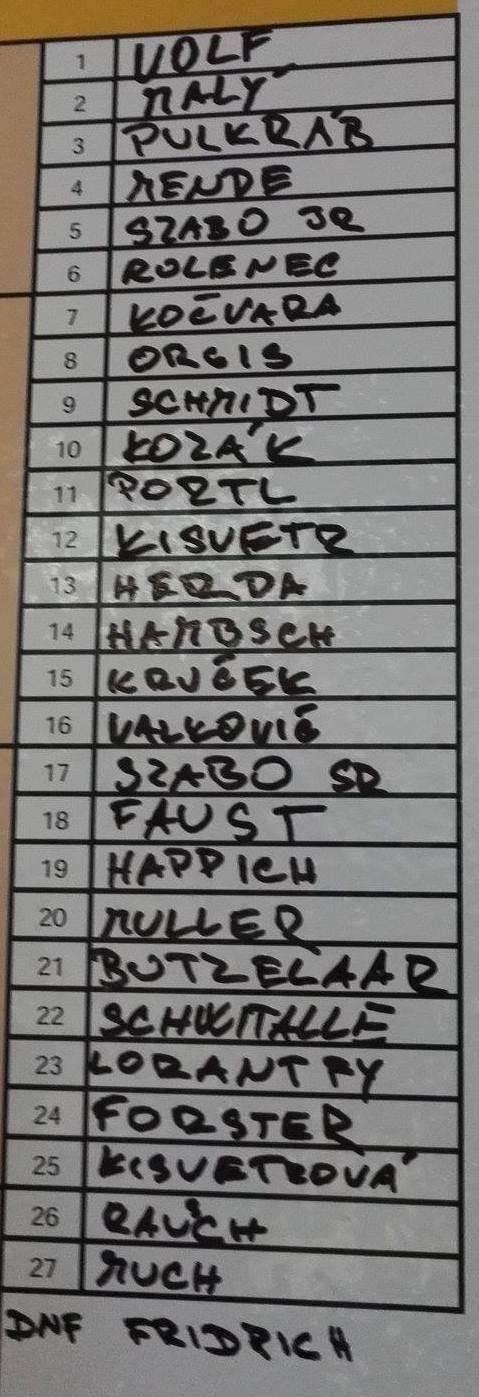 1 VOLF
2 MALÝ
3 PULKRÁB
4 MENDE
5 SZABO JR
6 ROLENEC
7 KOČVARA
8 ORGIS
9 SCHMIDT
10 KOZÁK
11 PORTL
12 KISVETR
13 HERDA
14 HAMBSCH
15 KRUČEK
16 VALKOVIČ
17 SZABO SR
18 FAUST
19 HAPPICH
20 MULLER
21 BUTZELAAR
22
23 LORANTFY
24 FORSTER
25 KISVETROVÁ
26 RAUCH
27 MUCH
DNF FRIDRICH